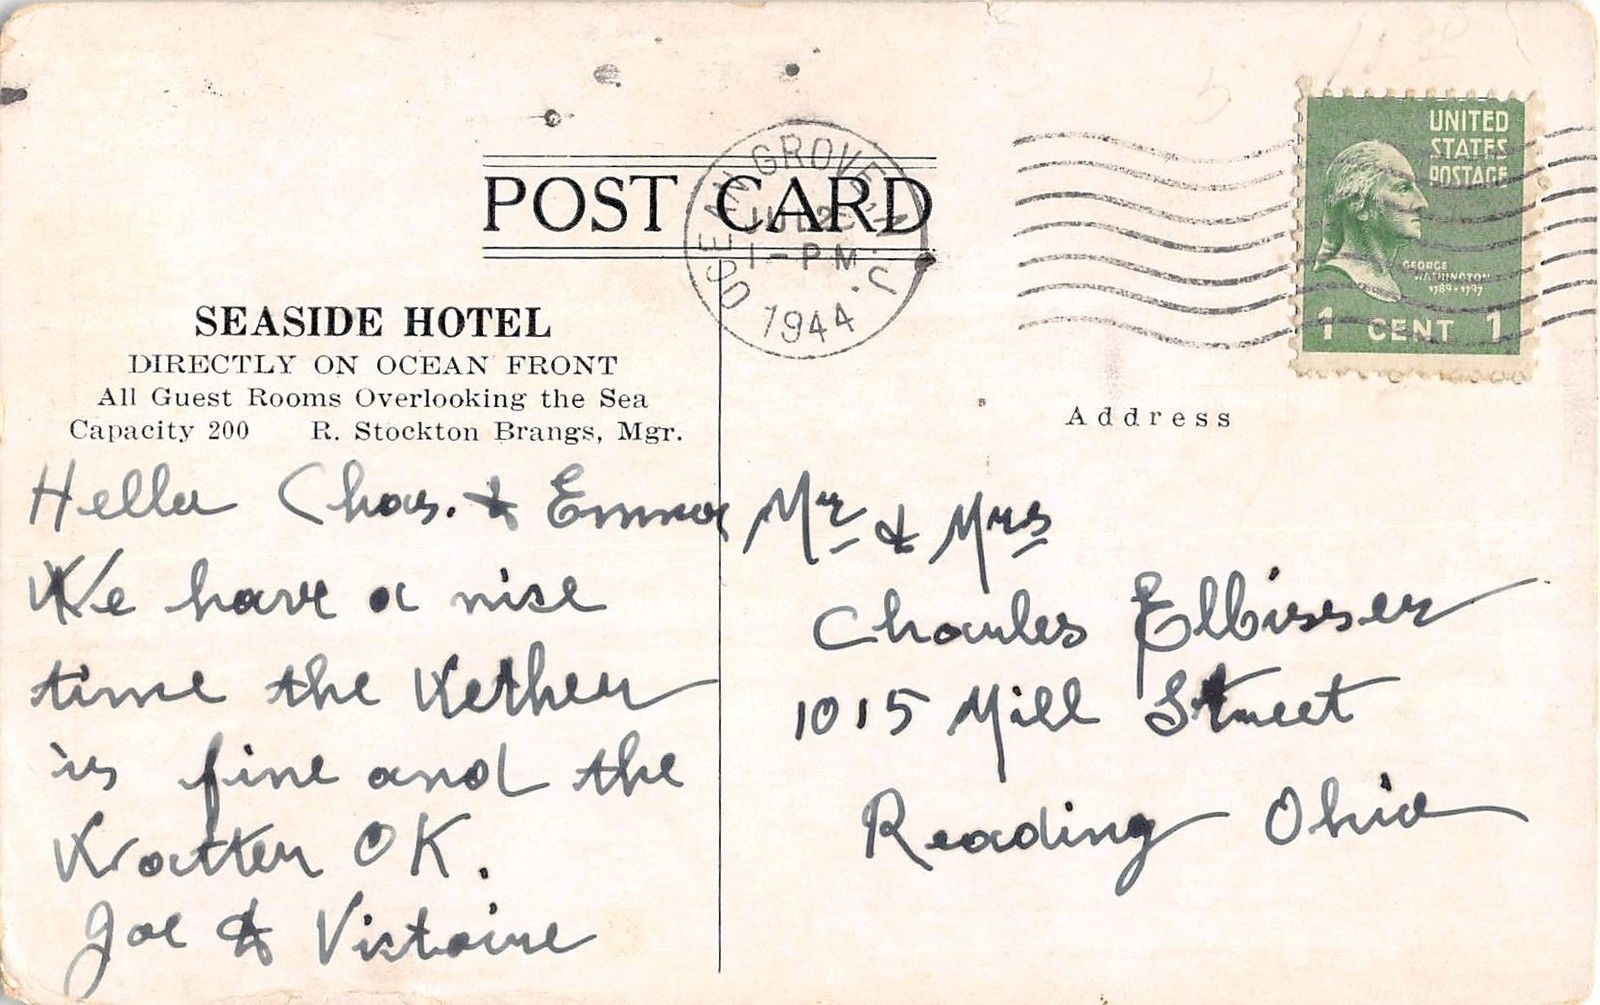 POST CARD
OCEAN GROVE N.J.
JUL 2
1-PM
1944
UNITED
STATES
POSTAGE
GEORGE
WASHINGTON
1789-1797
1 CENT 1
SEASIDE HOTEL
DIRECTLY ON OCEAN FRONT
All Guest Rooms Overlooking the Sea
Capacity 200 R. Stockton Brangs, Mgr.
Address
Hello Chas. & Emma
We have a nise
time the Wether
is fine and the
Watter OK.
Joe & Victoire
Mr & Mrs
Charles Elbisser
1015 Mill Street
Reading Ohio